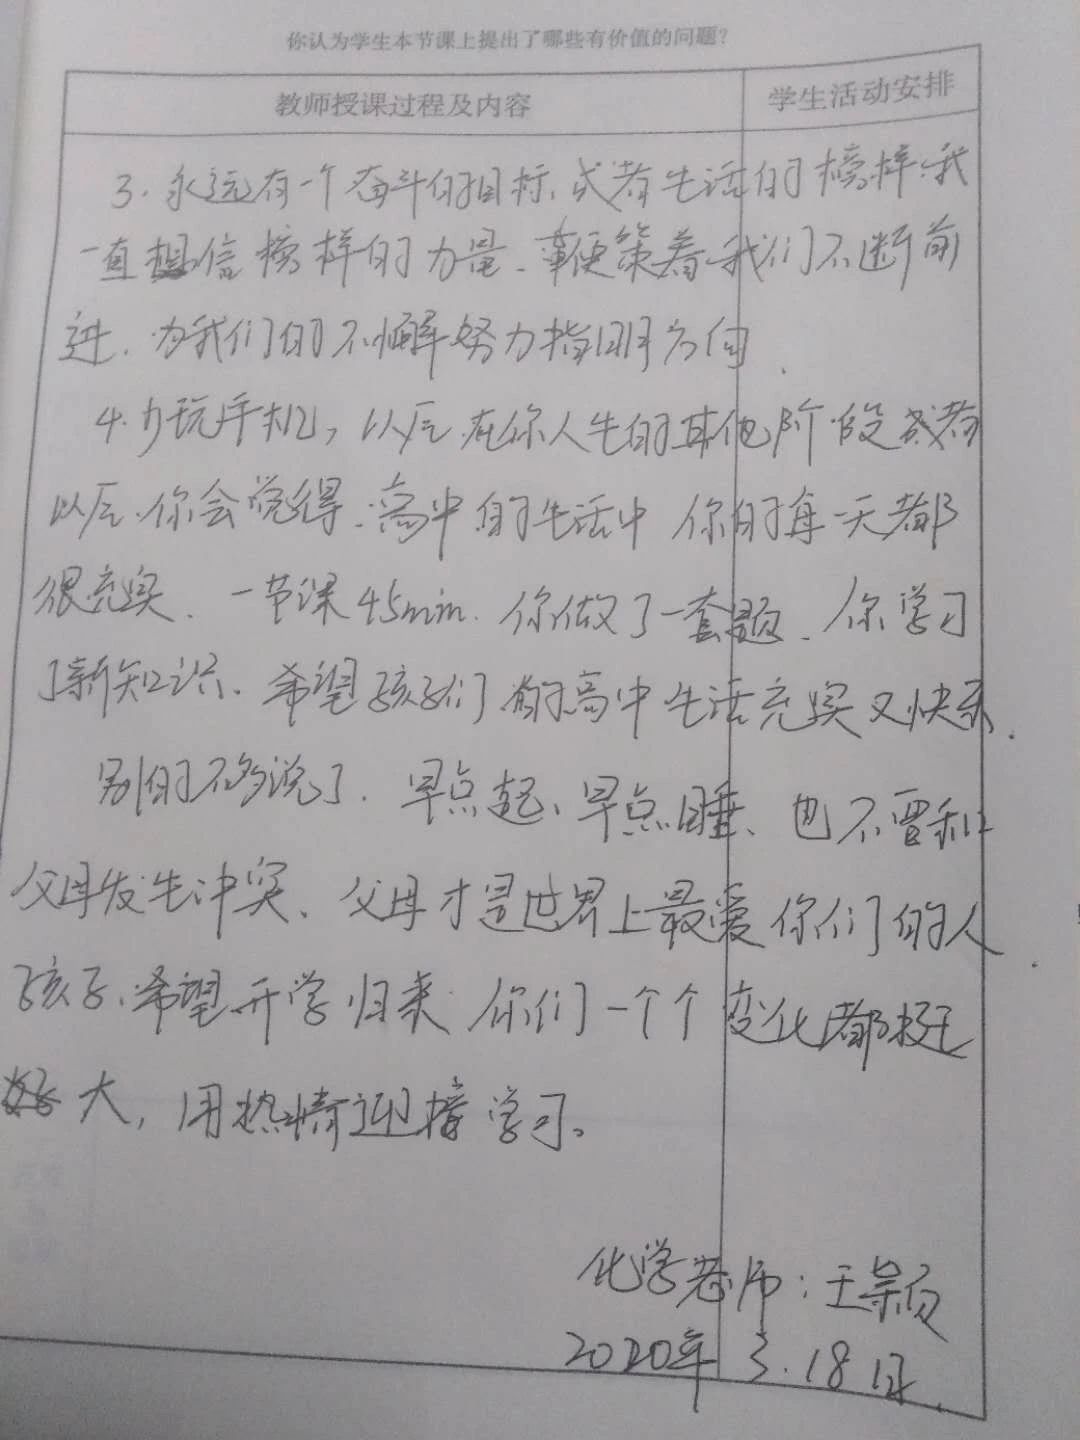 你认为学生本节课上提出了哪些有价值的问题？
教师授课过程及内容 学生活动安排
3. 永远有一个奋斗的目标、或者生活的榜样、我
一直相信榜样的力量、鞭策着我们不断前
进、为我们的不懈努力指明方向.
4. 少玩手机，以后在你人生的其他阶段或者
以后、你会觉得、高中的生活中 你的每一天都
很充实. 一节课45min. 你做了一套题、你学习
了新知识、希望孩子们的高中生活充实又快乐.
别的不多说了. 早点起、早点睡、也不要和
父母发生冲突、父母才是世界上最爱你们的人.
孩子、希望开学归来 你们一个个变化都挺
大，用热情迎接学习。
化学老师：王
2020年3.18日.